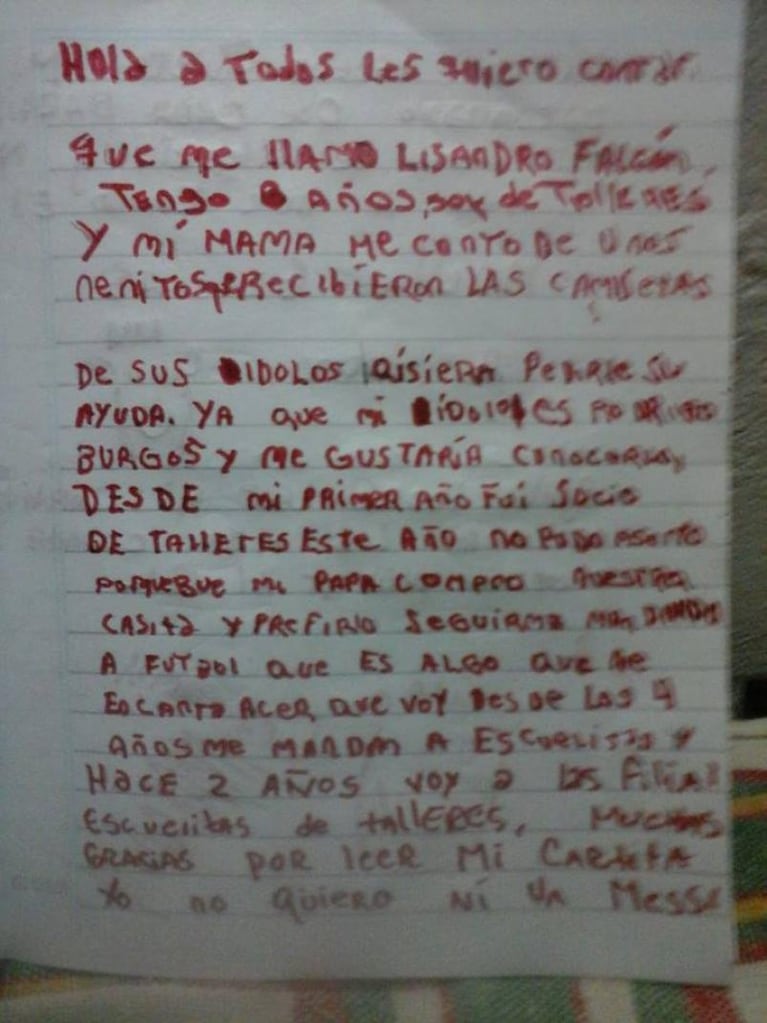 Hola a Todos Les quiero contar
que me llamo LISANDRO FALCÓN,
TENGO 8 AÑOS, soy de TALLERES
Y MÍ MAMA ME CONTO DE UNOS
NENITOS QE RECIBIERON LAS CAMISETAS
DE SUS IDOLOS QISIERA PEDIRLE SU
AYUDA. YA QUE MI ÍDOLO ES RODRIGO
BURGOS Y ME GUSTARÍA CONOCERLO,
DESDE MI PRIMER AÑO FUI SOCIO
DE TALLERES ESTE AÑO NO PUDO
MI PAPA COMPRO NUESTRA
CASITA Y PREFIRIO SEGUIRME MANDANDO
A FUTBOL QUE ES ALGO QUE ME
ENCANTA ACER QUE VOY DESDE LOS 4
AÑOS ME MANDAN A ESCUELITAS Y
HACE 2 AÑOS VOY A LAS FILIAL
ESCUELITAS de TALLERES, MUCHAS
GRACIAS POR LEER MI CARTITA
YO NO QUIERO NI UN MESSI